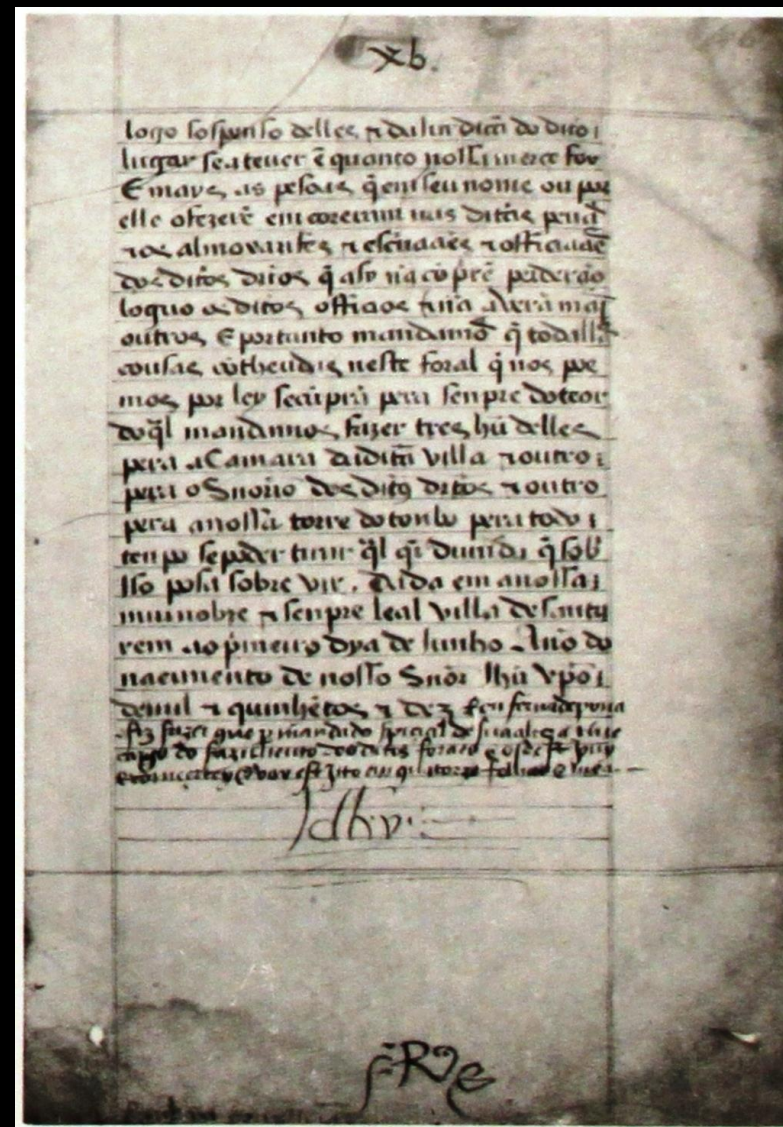 xb.
logo sospenso delles ⁊ da Juri diçã do dito
lugar se a teuer ẽ quanto nossa merce for
E mays as pesoas q̃ em seu nome ou por
elle ofezerẽ em correram nas ditas penas
⁊ os almoxarifes ⁊ escriuaães ⁊ officiaaes
dos ditos dr̃tos q̃ asy nã cõprẽ perderão
loguo os ditos officios ⁊ nã averã mais
outros E portanto mandamos q̃ todallas
cousas cõtheudas neste foral q̃ nos poe
mos por ley se cũprã pera senpre do teor
do q̃l mandamos fazer tres hũ delles
pera a Camara da dita villa ⁊ outro
pera o Snorio dos ditos dr̃tos ⁊ outro
pera a nossa torre do tonbo pera todo
tenpo se poder tirar q̃l q̃r duuida q̃ sob
Jso posa sobre vir. Dada em a nossa
mui nobre ⁊ senpre leal villa de santa
rem ao p̃meiro dya de Junho Ano do
nacimento de nosso Snõr Jhũ xpõ
de mil ⁊ quinhẽtos ⁊ dez
fiz fazer que per mandado special de sua alteza
cargo do fazimento dos ditos foraes
quatorze folhas